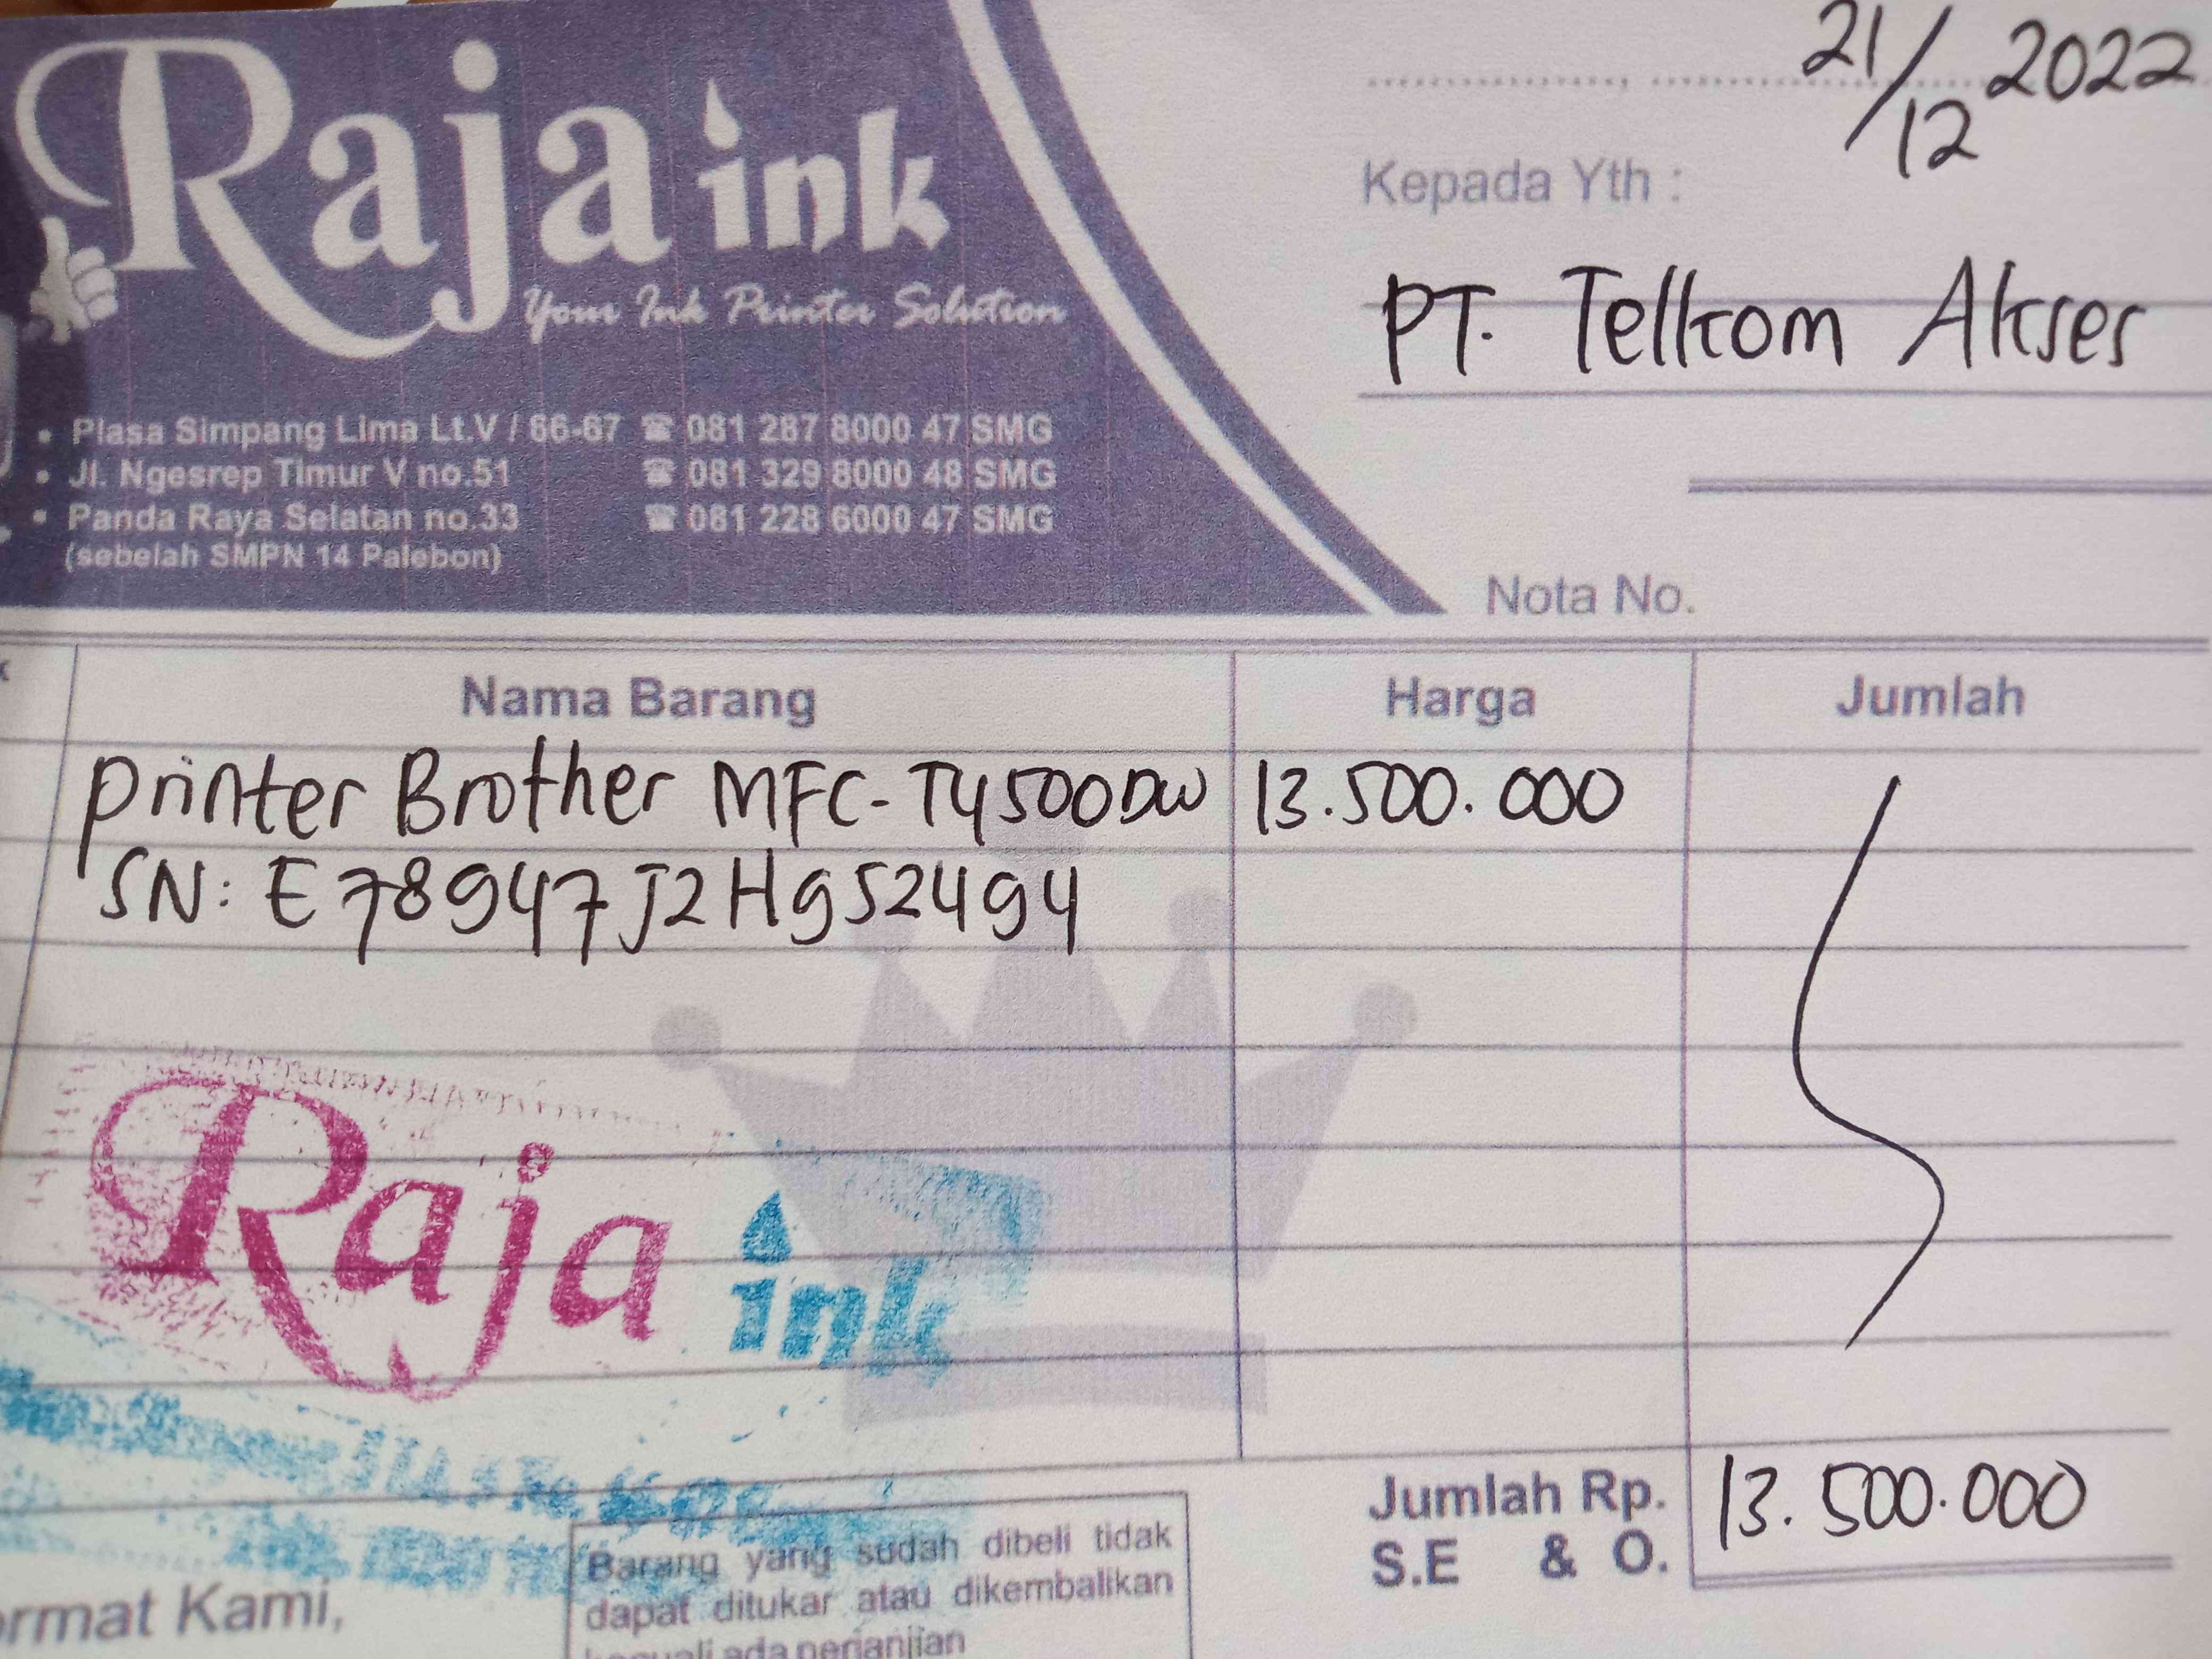 Raja ink
Your Ink Printer Solution
• Plasa Simpang Lima Lt.V / 66-67 ☎ 081 287 8000 47 SMG
• Jl. Ngesrep Timur V no.51 ☎ 081 329 8000 48 SMG
• Panda Raya Selatan no.33 ☎ 081 228 6000 47 SMG
(sebelah SMPN 14 Palebon)
21/12 2022
Kepada Yth :
PT. Telkom Akses
Nota No.
Nama Barang Harga Jumlah
Printer Brother MFC-T4500DW 13.500.000
SN: E78947J2H952494
Raja ink
Jumlah Rp. 13.500.000
S.E & O.
ormat Kami,
Barang yang sudah dibeli tidak
dapat ditukar atau dikembalikan
kecuali ada perjanjian